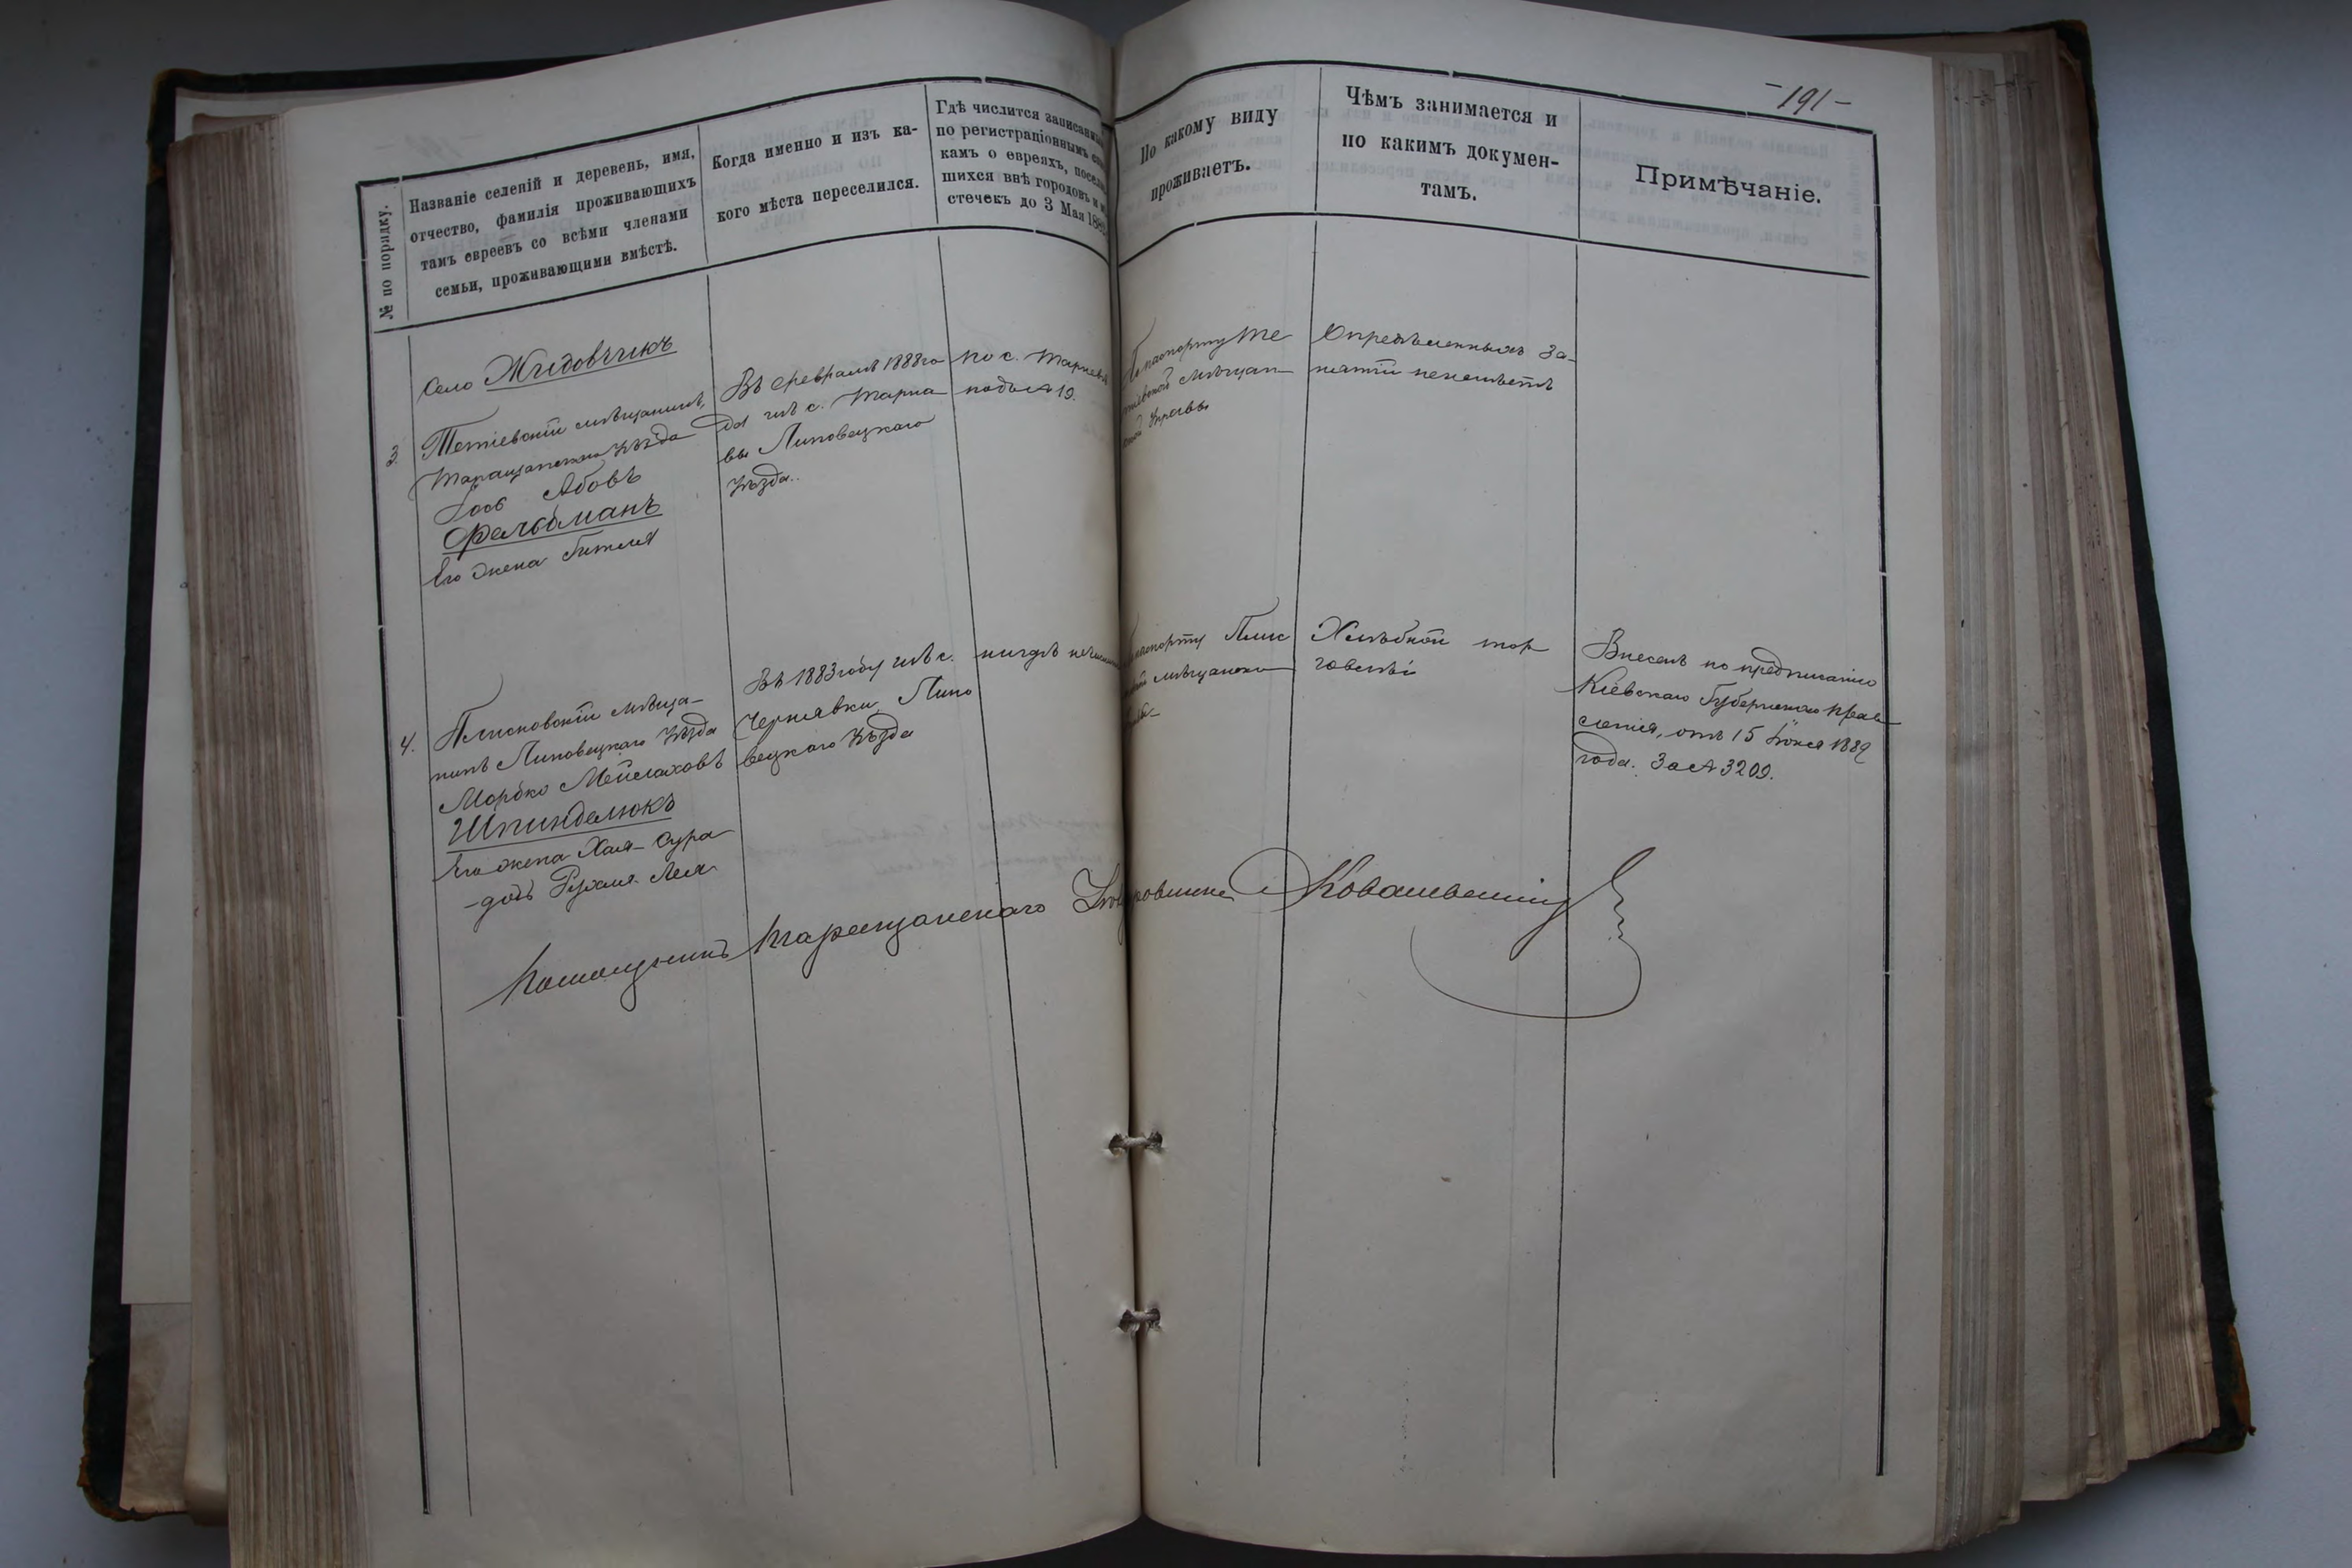 -191-
№ по порядку.
Названіе селеній и деревень, имя,
отчество, фамилія проживающихъ
тамъ евреевъ со всѣми членами
семьи, проживающими вмѣстѣ.
Когда именно и изъ ка-
кого мѣста переселился.
Гдѣ числится
по регистраціоннымъ
камъ о евреяхъ,
шихся внѣ городовъ и
стечекъ до 3 Мая
По какому виду
проживаетъ.
Чѣмъ занимается и
по какимъ докумен-
тамъ.
Примѣчаніе.
Село Жидовчикъ
3.
Тетіевскій мѣщанинъ,
Таращанскаго уѣзда
Абовъ
Фельдманъ
Его жена Гитля
Въ февралѣ 1888 го
да изъ с. Тарна
вы Липовецкаго
уѣзда..
по с.
подъ № 19.
паспорту Те
мѣщан
Управы
Опредѣленныхъ за-
нятій неимѣетъ
4.
Плисковскій мѣща-
нинъ Липовецкаго уѣзда
Мошко Мейлаховъ
Шпинделюкъ
Его жена Хая-Сура
-дочь Рухля Лея
Въ 1883 году изъ с.
Чернявки, Липо
вецкаго уѣзда
нигдѣ
паспорту Плис
мѣщанско
Хлѣбной тор
говлей
Внесенъ по предписанію
Кіевскаго Губернскаго Прав
ленія, отъ 15 Іюня 1889
года. За № 3209.
Помощникъ Таращанскаго